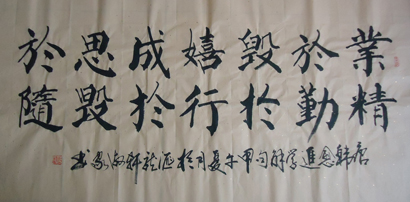 業精
於勤
毀於
嬉行
成於
思毀
於隨
唐韓愈進學解句甲午夏月於滙龍軒書